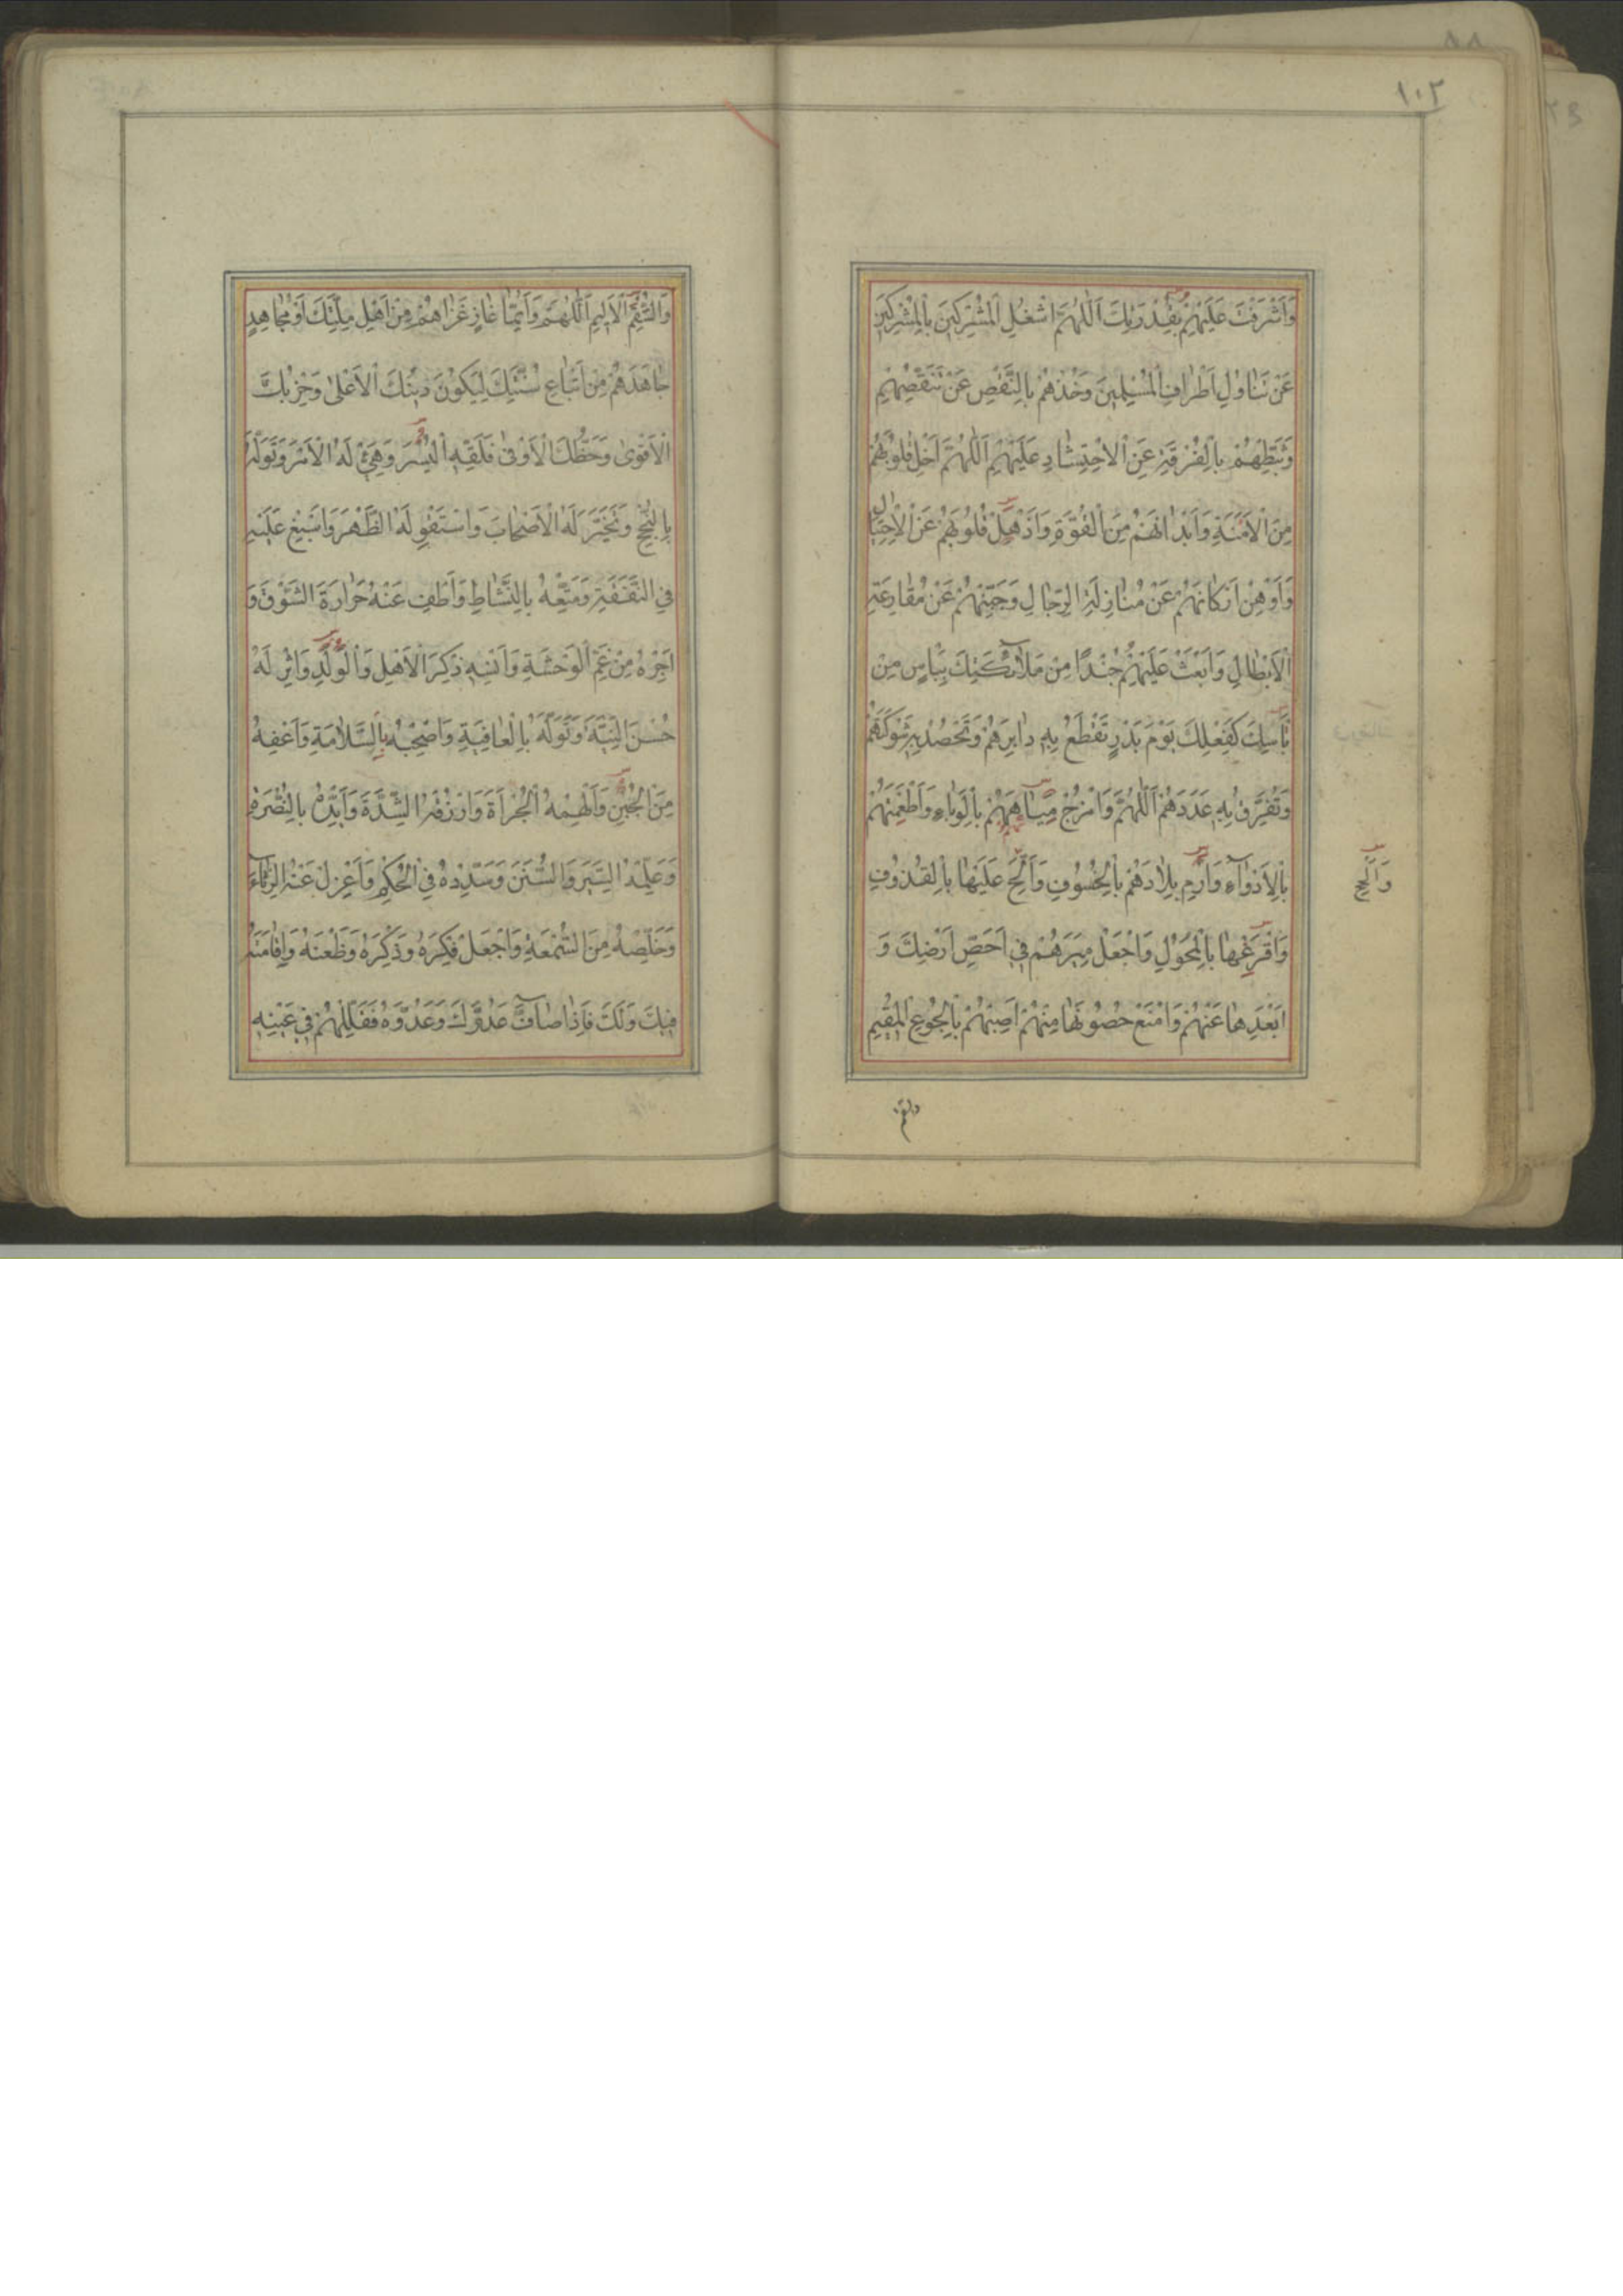 ١٠٢
وَاَشْرَفْتَ عَلَيْهِمْ بِقُدْرَتِكَ اَللّٰهُمَّ اشْغَلِ الْمُشْرِكِينَ بِالْمُشْرِكِينَ
عَنْ تَنَاوُلِ اَطْرَافِ الْمُسْلِمِينَ وَخُذْهُمْ بِالنَّقْصِ عَنْ تَنَقُّصِهِمْ
وَثَبِّطْهُمْ بِالْفُرْقَةِ عَنِ الْاِحْتِشَادِ عَلَيْهِمْ اَللّٰهُمَّ اَخْلِ قُلُوبَهُمْ
مِنَ الْاَمَنَةِ وَاَبْدَانَهُمْ مِنَ الْقُوَّةِ وَاَذْهِلْ قُلُوبَهُمْ عَنِ الْاِحْتِيَالِ
وَاَوْهِنْ اَرْكَانَهُمْ عَنْ مُنَازِلَةِ الرِّجَالِ وَجَبِّنْهُمْ عَنْ مُقَارَعَةِ
الْاَبْطَالِ وَابْعَثْ عَلَيْهِمْ جُنْدًا مِنْ مَلَآئِكَتِكَ بِبَاْسٍ مِنْ
بَاْسِكَ كَفِعْلِكَ يَوْمَ بَدْرٍ تَقْطَعُ بِهِ دَابِرَهُمْ وَتَحْصُدُ بِهِ شَوْكَتَهُمْ
وَتُفَرِّقُ بِهِ عَدَدَهُمْ اَللّٰهُمَّ وَامْزُجْ مِيَاهَهُمْ بِالْوَبَاءِ وَاَطْعِمَتَهُمْ
بِالْاَدْوَآءِ وَارْمِ بِلَادَهُمْ بِالْخُسُوفِ وَاَلِحَّ عَلَيْهَا بِالْقُذُوفِ
وَالِحَّ
وَافْرَعْهَا بِالْمُحُولِ وَاجْعَلْ مِيَرَهُمْ فِي اَحَصِّ اَرْضِكَ وَ
اَبْعَدِهَا عَنْهُمْ وَامْنَعْ حُصُونَهَا مِنْهُمْ اَصِبْهُمْ بِالْجُوعِ الْمُقِيمِ
والسقم
وَالسُّقْمِ الْاَلِيمِ اَللّٰهُمَّ وَاَيُّمَا غَازٍ غَزَاهُمْ مِنْ اَهْلِ مِلَّتِكَ اَوْ مُجَاهِدٍ
جَاهَدَهُمْ مِنْ اَتْبَاعِ سُنَّتِكَ لِيَكُونَ دِينُكَ الْاَعْلٰى وَحِزْبُكَ
الْاَقْوٰى وَحَظُّكَ الْاَوْفٰى فَلَقِّهِ الْيُسْرَ وَهَيِّئْ لَهُ الْاَمْرَ وَتَوَلَّهُ
بِالنُّجْحِ وَتَخَيَّرْ لَهُ الْاَصْحَابَ وَاسْتَقْوِ لَهُ الظَّهْرَ وَاَسْبِغْ عَلَيْهِ
فِي النَّفَقَةِ وَمَتِّعْهُ بِالنَّشَاطِ وَاَطْفِ عَنْهُ حَرَارَةَ الشَّوْقِ وَ
اَجِرْهُ مِنْ غَمِّ الْوَحْشَةِ وَاَنْسِهِ ذِكْرَ الْاَهْلِ وَالْوَلَدِ وَاْثِرْ لَهُ
حُسْنَ النِّيَّةِ وَتَوَلَّهُ بِالْعَافِيَةِ وَاَصْحِبْهُ بِالسَّلَامَةِ وَاَعْفِهِ
مِنَ الْجُبْنِ وَاَلْهِمْهُ الْجُرْاَةَ وَارْزُقْهُ الشِّدَّةَ وَاَيِّدْهُ بِالنُّصْرَةِ
وَعَلِّمْهُ السِّيَرَ وَالسُّنَنَ وَسَدِّدْهُ فِي الْحُكْمِ وَاعْزِلْ عَنْهُ الرِّيَآءَ
وَخَلِّصْهُ مِنَ السُّمْعَةِ وَاجْعَلْ فِكْرَهُ وَذِكْرَهُ وَظَعْنَهُ وَاِقَامَتَهُ
فِيكَ وَلَكَ فَاِذَا صَآفَّ عَدُوَّكَ وَعَدُوَّهُ فَقَلِّلْهُمْ فِي عَيْنِهِ